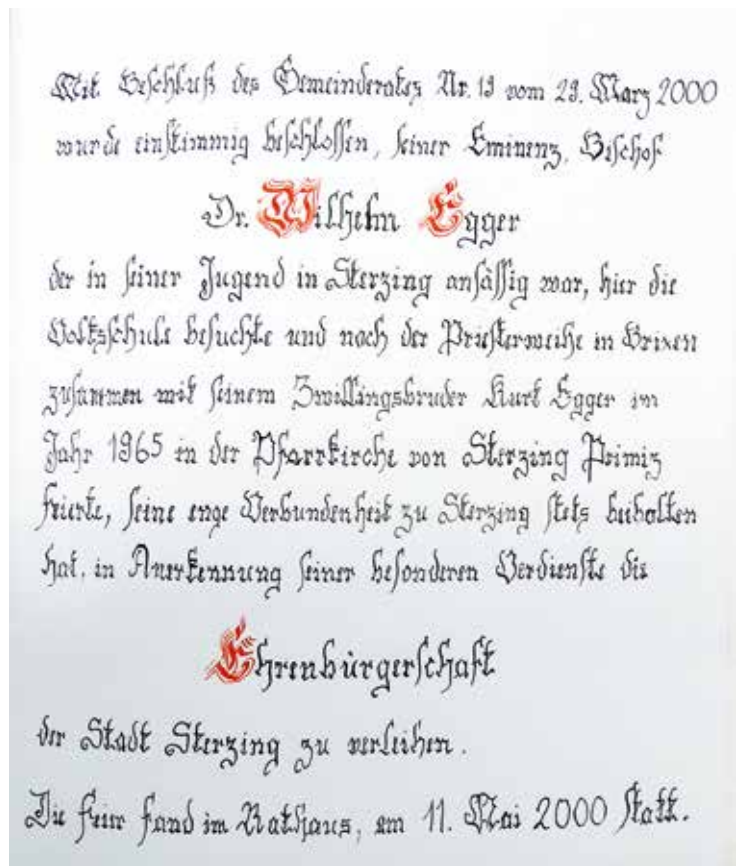 Mit Beschluß des Gemeinderates Nr. 19 vom 29. März 2000
wurde einstimmig beschlossen, seiner Eminenz, Bischof
Dr. Wilhelm Egger
der in seiner Jugend in Sterzing ansässig war, hier die
Volksschule besuchte und nach der Priesterweihe in Brixen
zusammen mit seinem Zwillingsbruder Kurt Egger im
Jahr 1965 in der Pfarrkirche von Sterzing Primiz
feierte, seine enge Verbundenheit zu Sterzing stets behalten
hat, in Anerkennung seiner besonderen Verdienste die
Ehrenbürgerschaft
der Stadt Sterzing zu verleihen.
Die Feier fand im Rathaus, am 11. Mai 2000 statt.